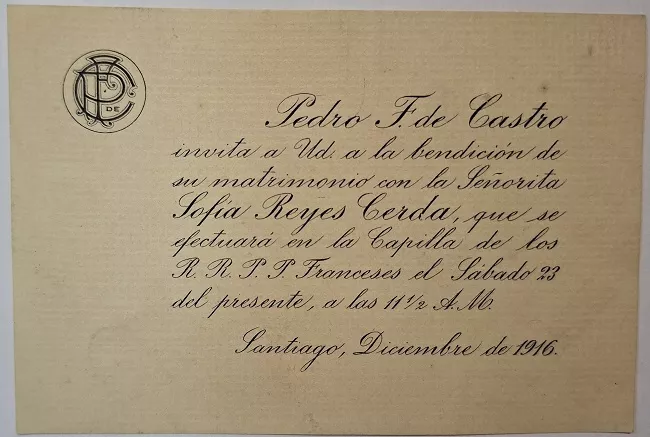 Pedro F. de Castro
invita a Ud. a la bendición de
su matrimonio con la Señorita
Sofía Reyes Cerda, que se
efectuará en la Capilla de los
R. R. P. P. Franceses el Sábado 23
del presente, a las 11 1/2 A. M.
Santiago, Diciembre de 1916.
DE